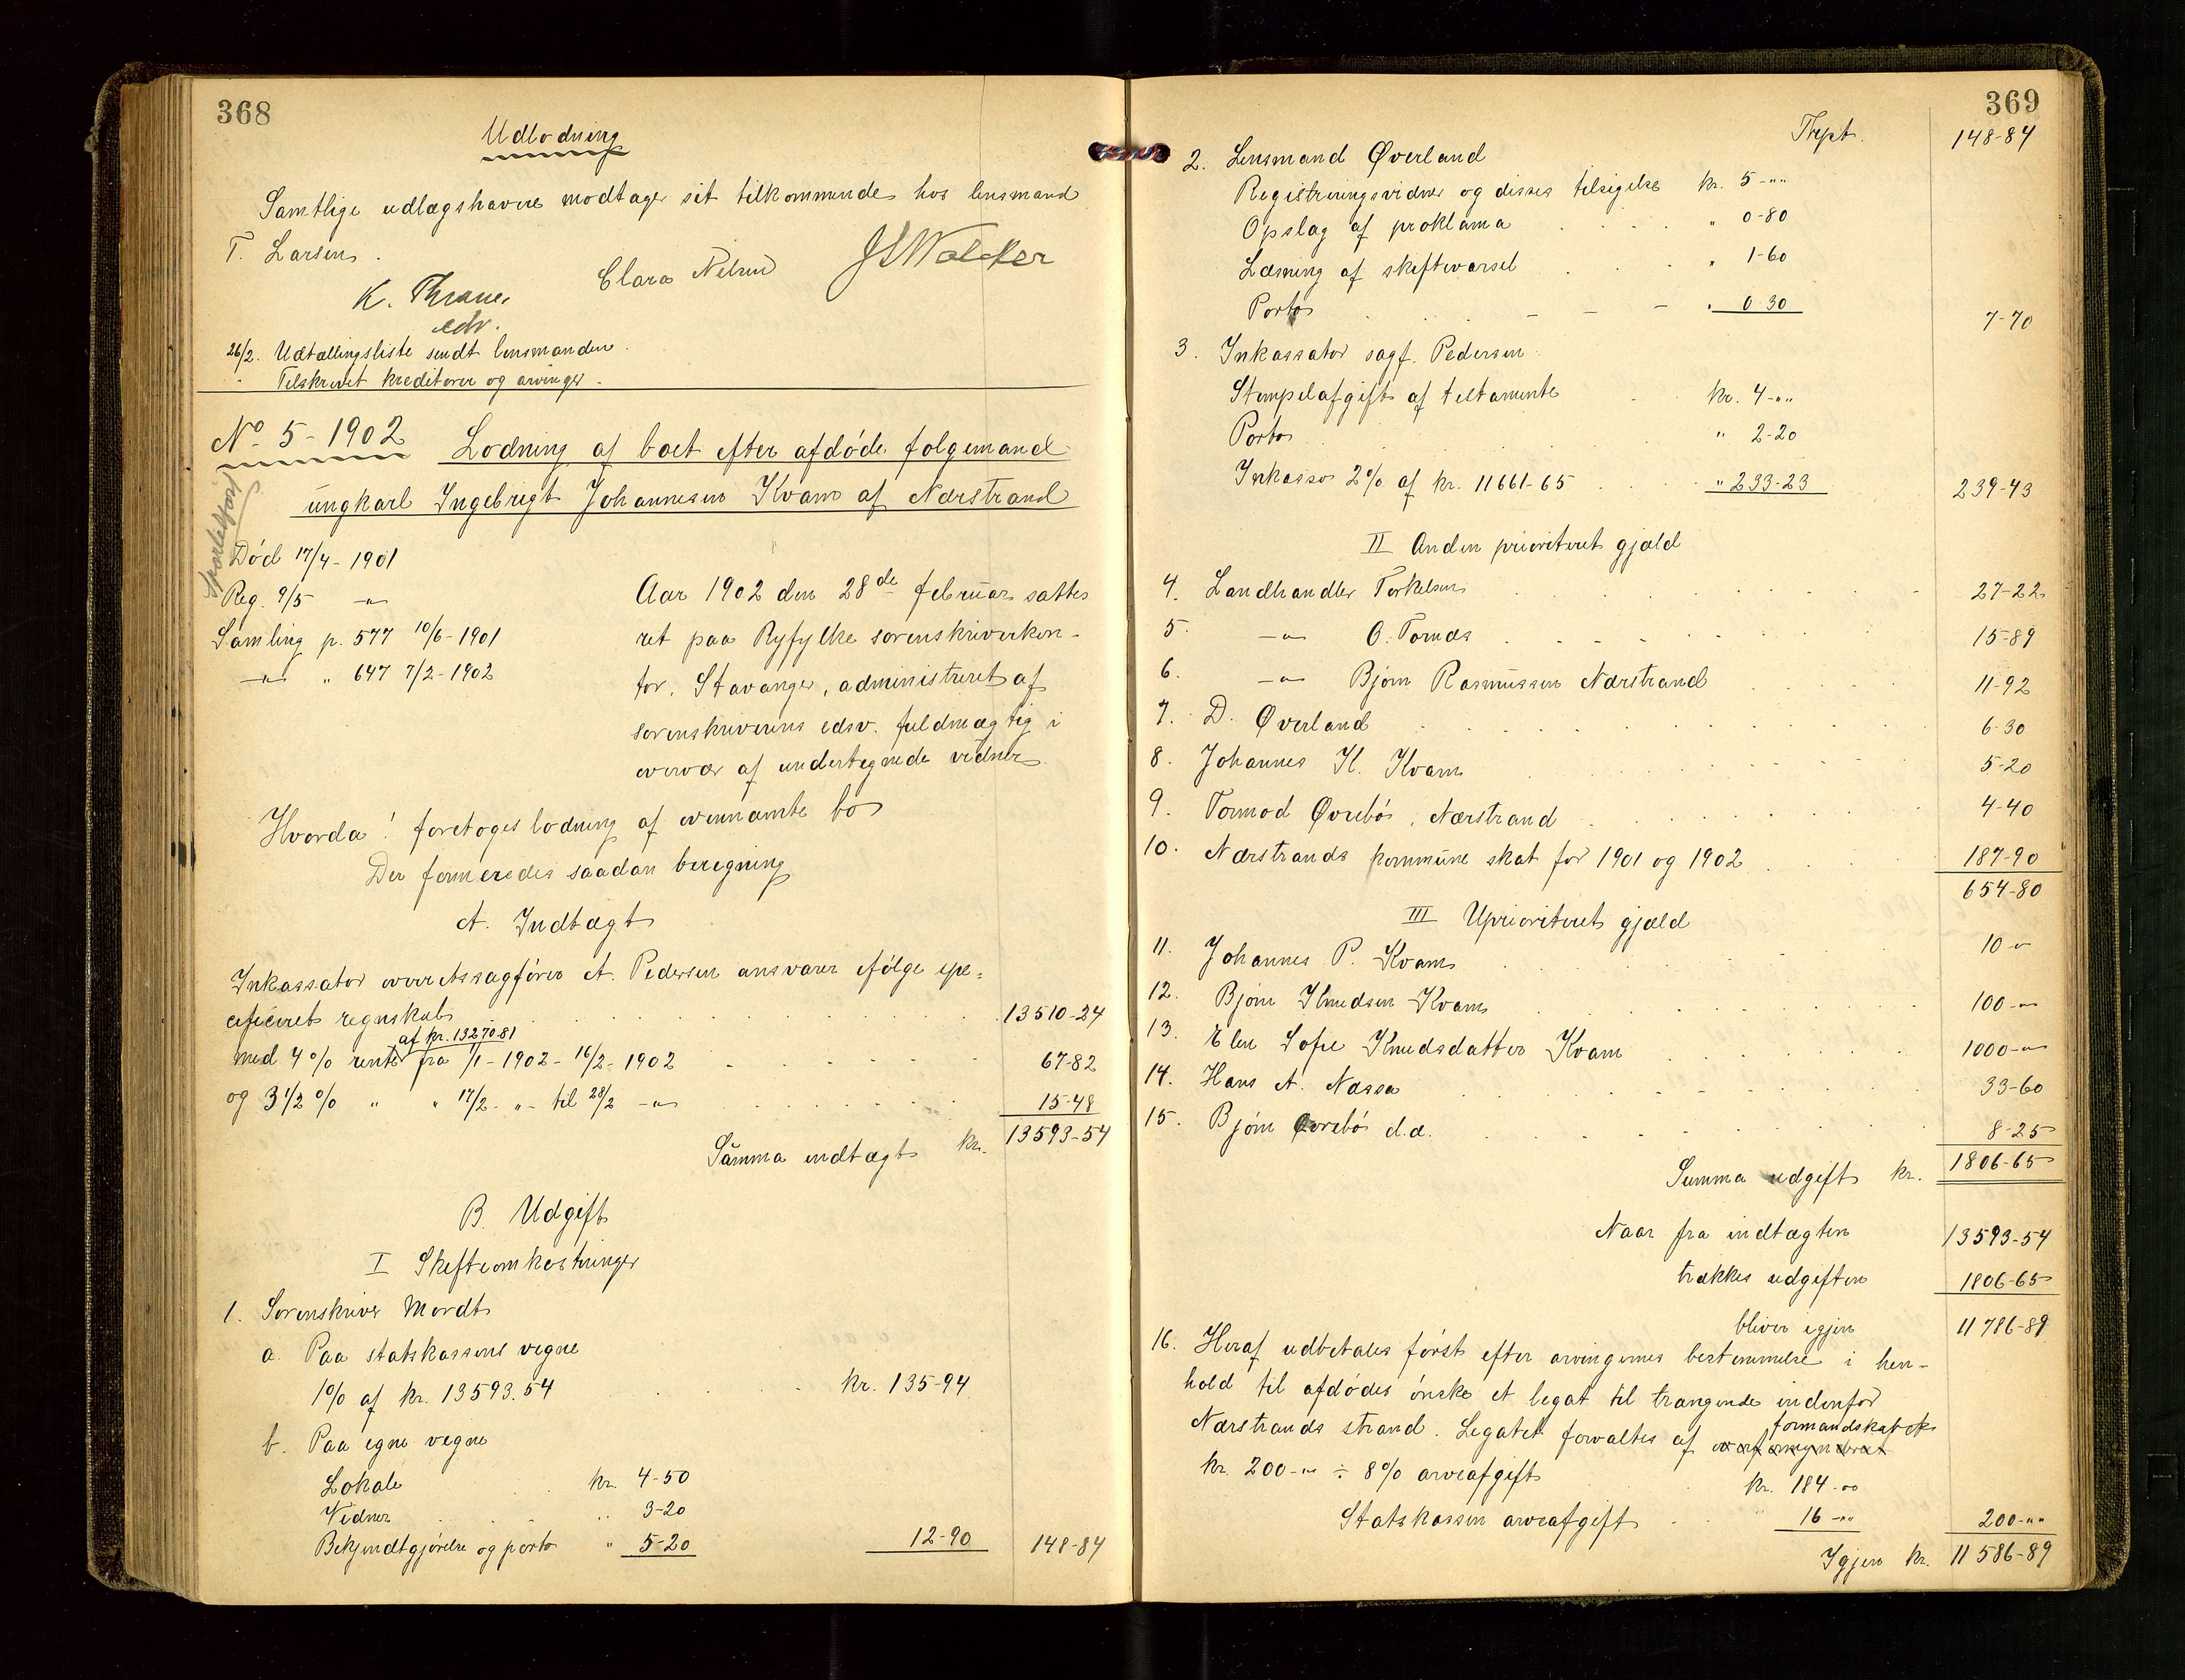 368
Udlodning
Samtlige udlægshavere modtager sit tilkommende hos lensmand
T. Larsen.
K. Thrane Clara Nelsen
edv.
26/2. Udtællingsliste sendt lensmanden.
" Tilskrevet kreditorer og arvinger.
No 5-1902 Lodning af boet efter afdøde folgemand
ungkarl Ingebrigt Johannesen Kvam af Nærstrand
Død 17/4-1901
Reg. 9/5 -"-
Samling p. 577 10/6-1901
-"- " 647 7/2-1902
Aar 1902 den 28de februar sattes
ret paa Ryfylke sorenskriverkon-
tor, Stavanger, administreret af
sorenskriverens edsv. fuldmægtig i
overvær af undertegnede vidner.
Hvorda! foretoges lodning af ovennævnte bo
Der formeredes saadan beregning
A. Indtægt
Inkassator overretssagfører A. Pedersen ansvarer ifølge spe=
cificeret regnskab . . . 13510-24
af kr. 13270.81
med 4% rente fra 1/1-1902-16/2-1902 - 67-82
og 3 1/2 % " " 17/2-"- til 28/2 -"- 15-48
Summa indtægt kr. 13593-54
B. Udgift
I Skifteomkostninger
1. Sorenskriver Mordt
a. Paa statskassens vegne
1% af kr. 13593.54 . . . kr. 135-94
b. Paa egne vegne
Lokale . kr. 4-50
Vidner . . " 3-20
Bekjendtgjørelse og porto " 5-20 12-90 148-84
369
Trpt. 148-84
2. Lensmand Øverland
Registreringsvidner og disses tilsigelse kr. 5-""
Opslag af proklama . . . " 0-80
Læsning af skiftevarsel . . " 1-60
Porto . - - - " 0-30 7-70
3. Inkassator sagf. Pedersen
Stempelafgift af testamente . kr. 4-""
Porto . . . " 2-20
Inkasso 2% af kr. 11661-65 . . " 233-23 239-43
II Anden prioriteret gjæld
4. Landhandler Torkelsen . . . 27-22
5. -"- O. Tornæs . . . 15-89
6. -"- Bjørn Rasmussen Nærstrand . . . 11-92
7. D. Øverland . . . 6-30
8. Johannes K. Kvam . . . 5-20
9. Tormod Øvrebø, Nærstrand . . . 4-40
10. Nærstrands kommune skat for 1901 og 1902 . . . 187-90
654-80
III Uprioriteret gjæld
11. Johannes P. Kvam . . . 10-"
12. Bjørn Knudsen Kvam . . . 100-"
13. Elen Sofie Knudsdatter Kvam . . . 1000-"
14. Hans A. Næssa . . . 33-60
15. Bjørn Øvrebø d.æ. . . . 8-25
Summa udgift kr. 1806-65
Naar fra indtægten 13593-54
trækkes udgiften 1806-65
bliver igjen 11786-89
16. Heraf udbetales først efter arvingernes bestemmelse i hen-
hold til afdødes ønske et legat til trængende indenfor
Nærstrands strand. Legatet forvaltes af overformynderiet formandskabet
kr. 200-"" ÷ 8% arveafgift kr. 184.00
Statskassen arveafgift . " 16-"" 200-""
Igjen kr. 11586-89